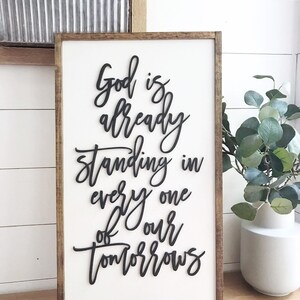 God is
already
standing in
every one
of our
tomorrows